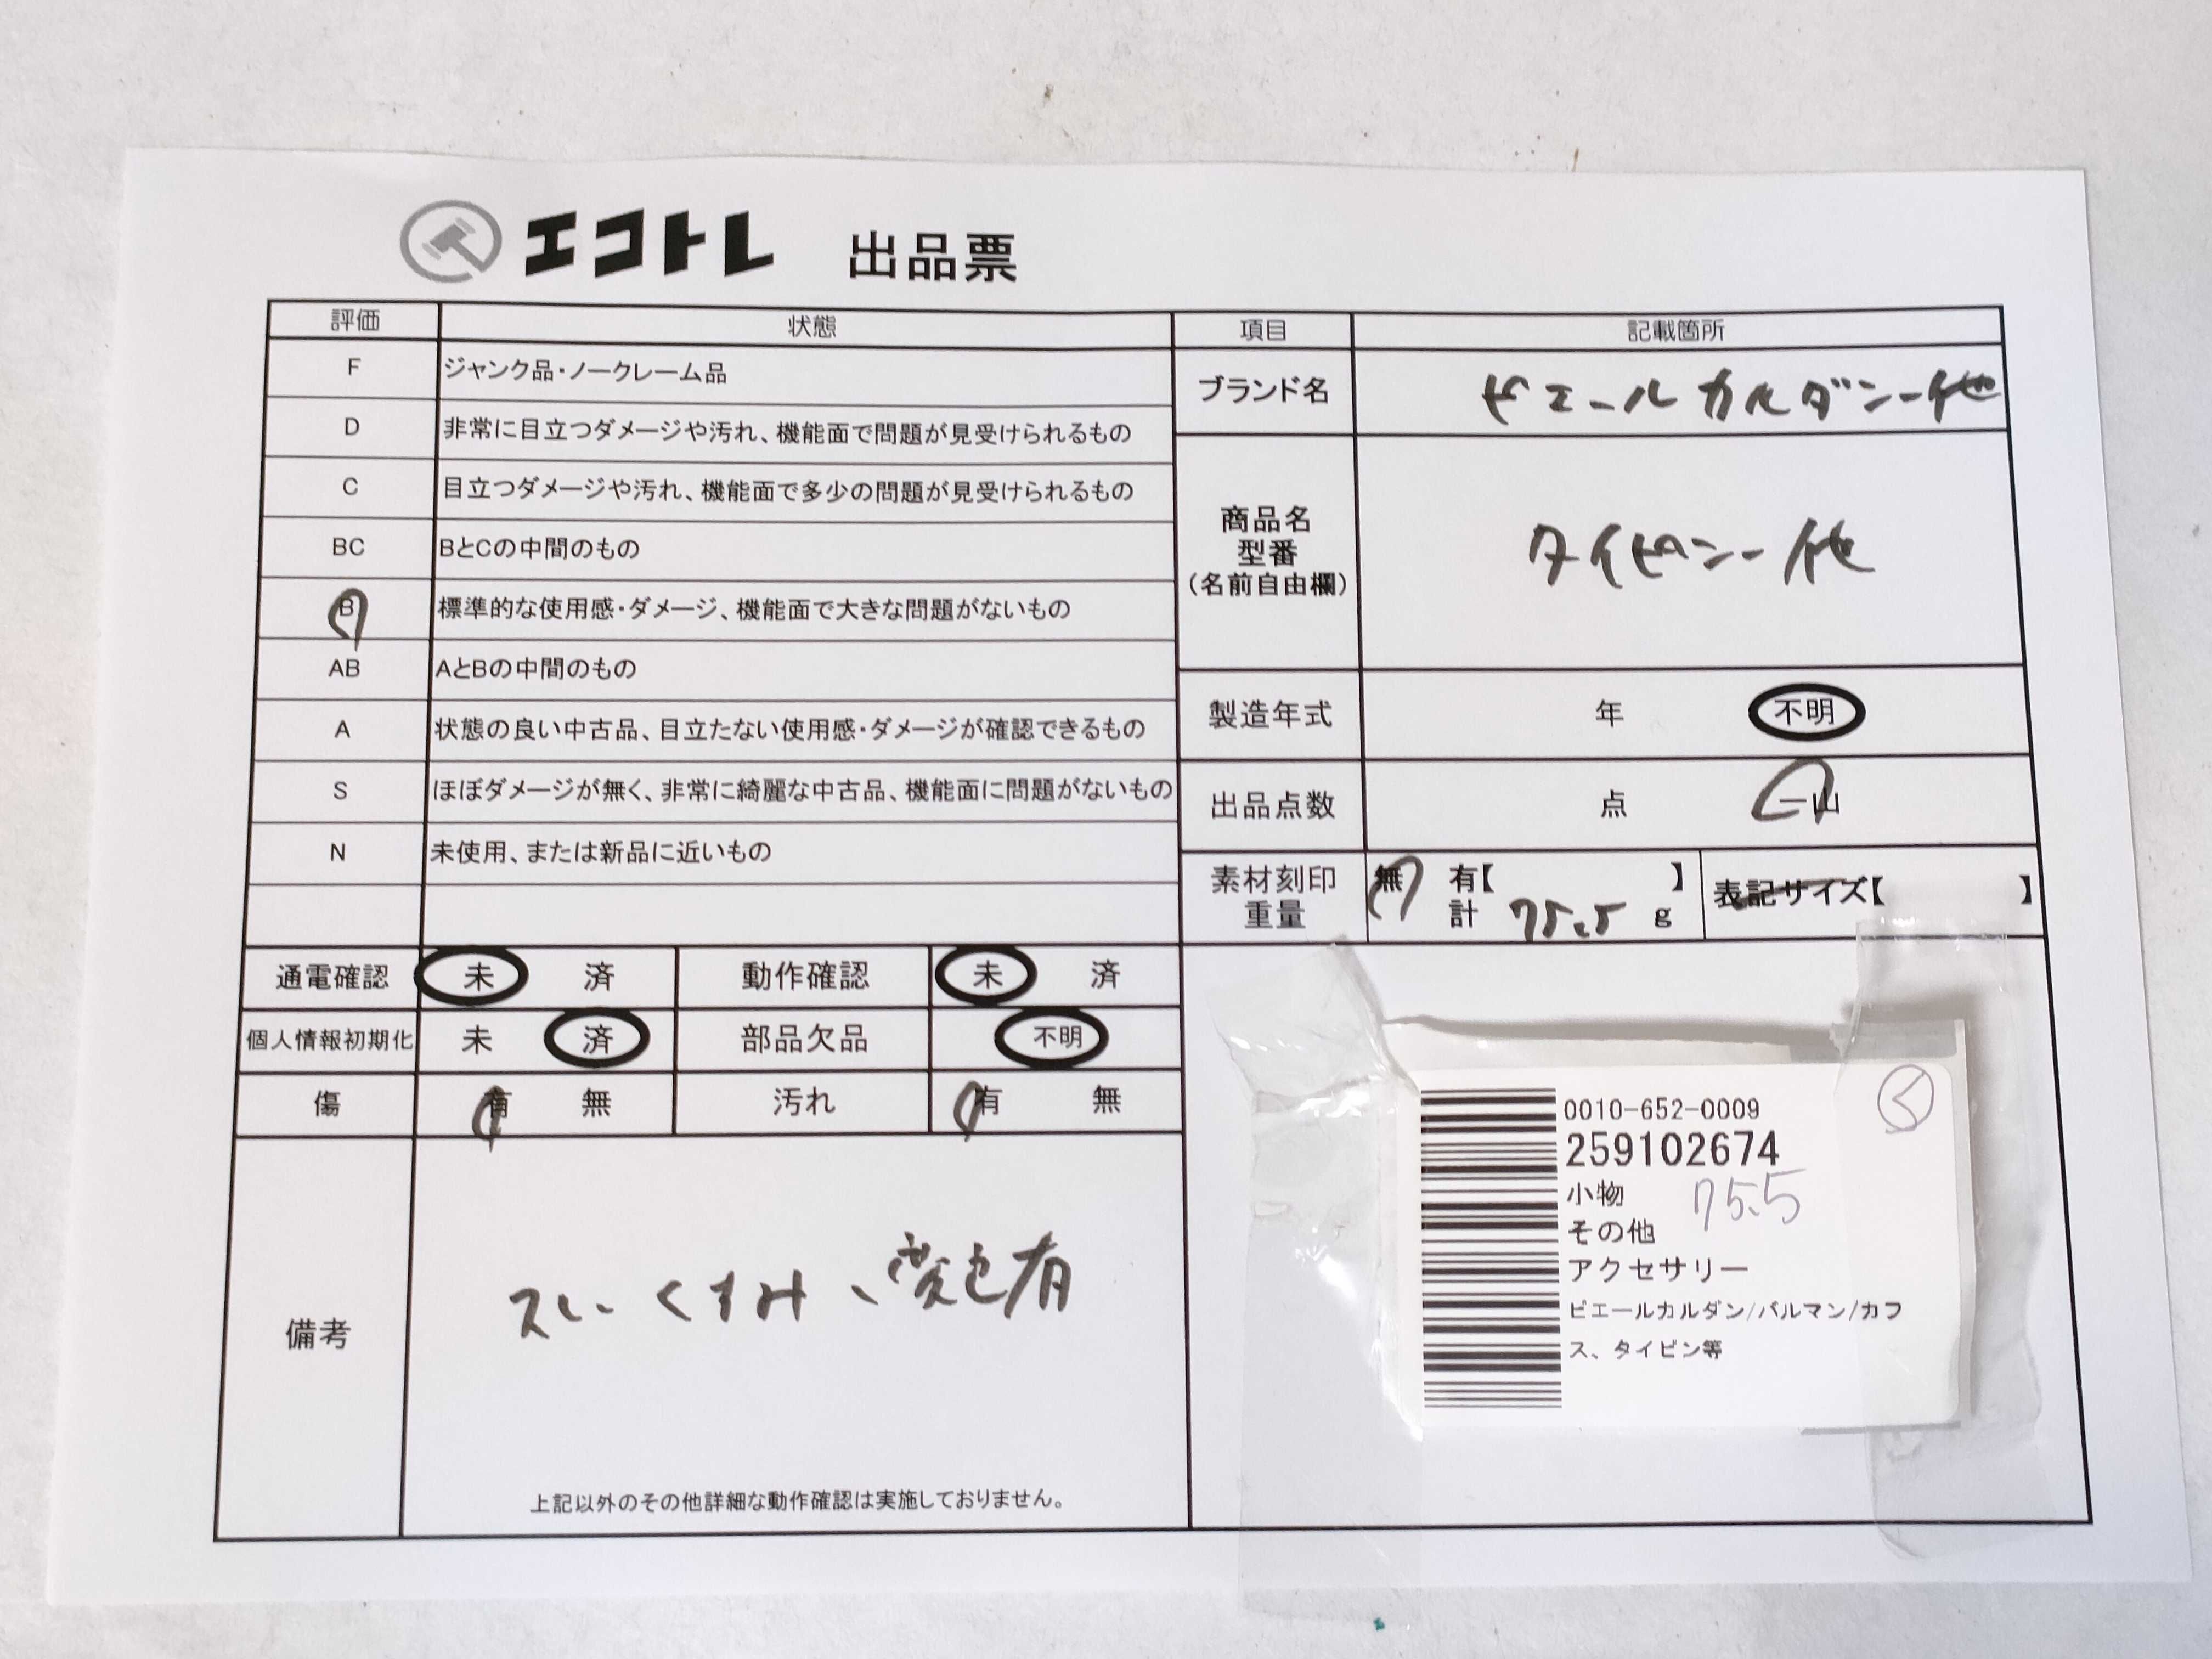 エコトレ 出品票
評価 状態 項目 記載箇所
F ジャンク品・ノークレーム品
D 非常に目立つダメージや汚れ、機能面で問題が見受けられるもの
C 目立つダメージや汚れ、機能面で多少の問題が見受けられるもの
BC BとCの中間のもの
B 標準的な使用感・ダメージ、機能面で大きな問題がないもの
AB AとBの中間のもの
A 状態の良い中古品、目立たない使用感・ダメージが確認できるもの
S ほぼダメージが無く、非常に綺麗な中古品、機能面に問題がないもの
N 未使用、または新品に近いもの
ブランド名 ピエールカルダン 他
商品名
型番
(名前自由欄)
タイピン 他
製造年式 年 不明
出品点数 点 一山
素材刻印
重量
無 有【 】
計 75.5 g
表記サイズ【 】
通電確認 未 済 動作確認 未 済
個人情報初期化 未 済 部品欠品 不明
傷 有 無 汚れ 有 無
備考
スレ、くすみ、変色有
上記以外のその他詳細な動作確認は実施しておりません。
0010-652-0009
259102674
小物 75.5
その他
アクセサリー
ピエールカルダン/バルマン/カフ
ス、タイピン等